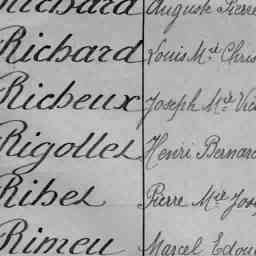 Richard Auguste Pierre
Richard Louis M.el Chris
Richeux Joseph M.el Vic
Rigolles Henri Bernard
Rihel Pierre M.el Jos
Rimeu Marcel Edou